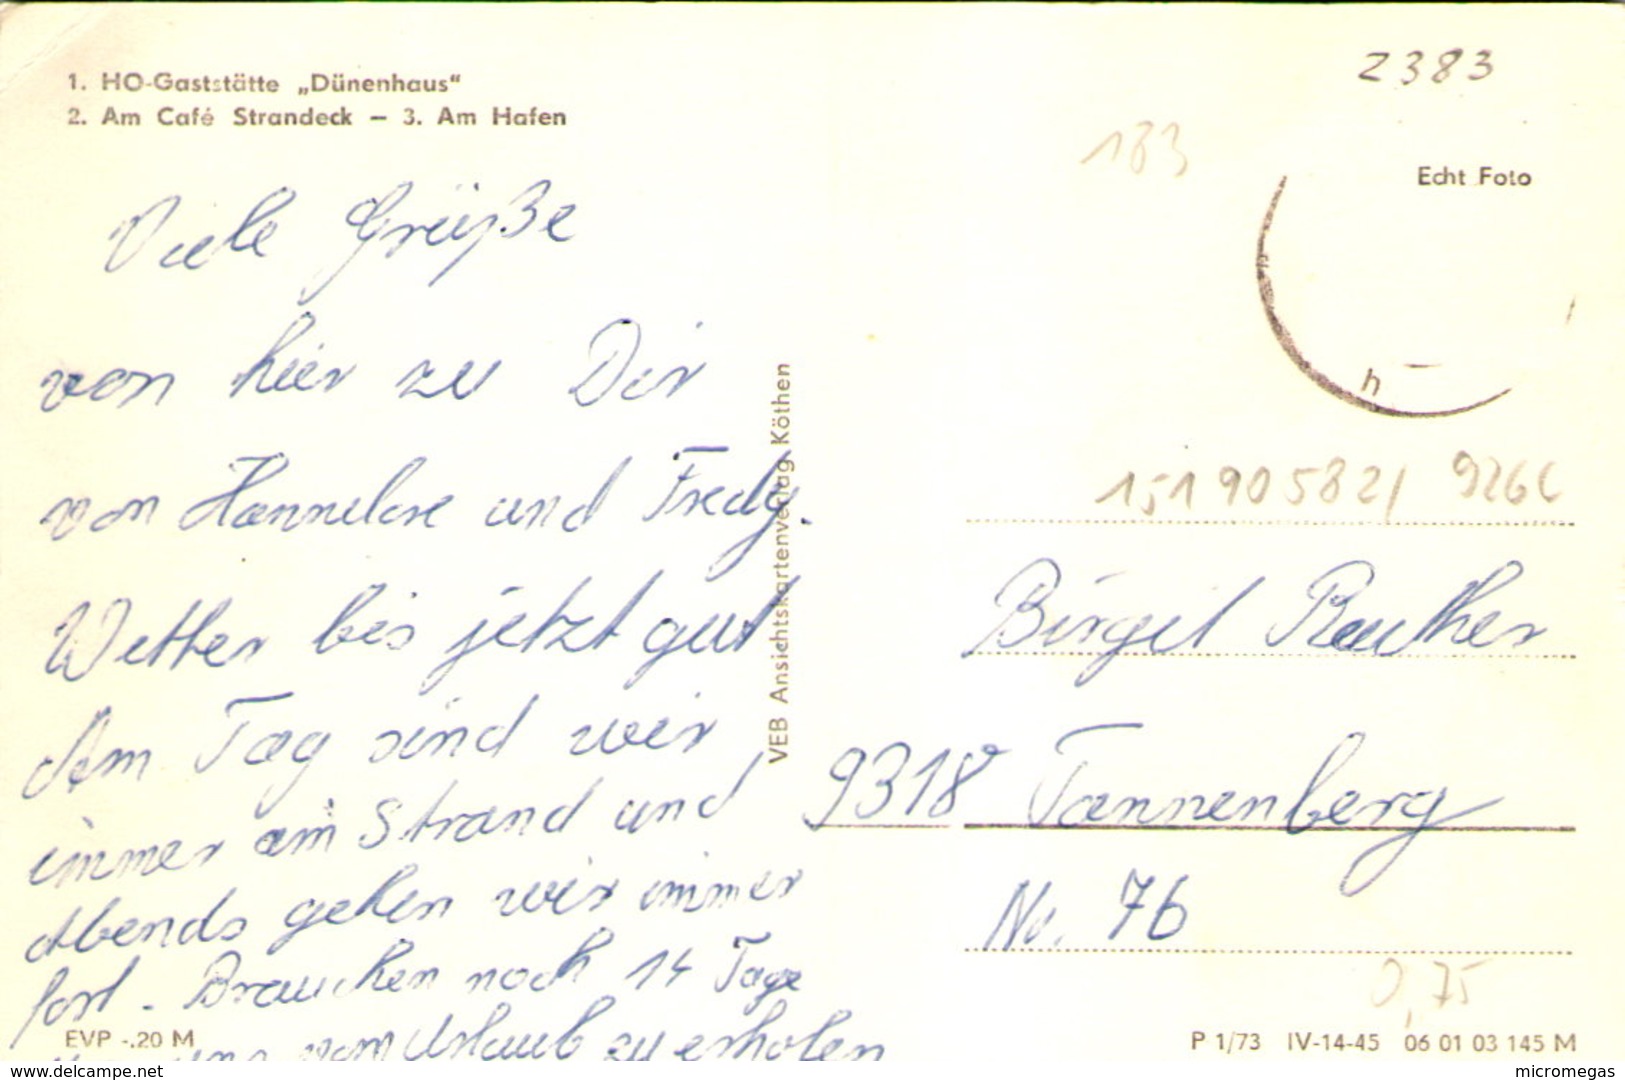 1. HO-Gaststätte „Dünenhaus“
2. Am Café Strandeck – 3. Am Hafen
Viele Grüße
von hier zu Dir
von Hannelore und Fredy.
Wetter bis jetzt gut
Am Tag sind wir
immer am Strand und
Abends gehen wir immer
fort. Brauchen noch 14 Tage
uns vom Urlaub zu erholen
EVP -.20 M
VEB Ansichtskartenverlag Köthen
2383
183
Echt Foto
h
15190582/ 926
Birgit Reuther
9318 Tannenberg
Nr. 76
0,75
P 1/73 IV-14-45 06 01 03 145 M
www.delcampe.net
micromegas